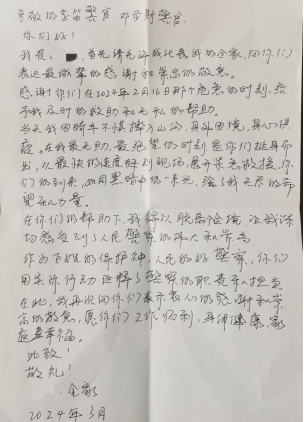 尊敬的李笛警官、邓前财警官,
你们好!
我是: 首先请允许我代表我的全家,向你们
表达最诚挚的感谢和崇高的敬意。
感谢你们在2024年2月16日那个危急的时刻,给
予我及时的救助和无私的帮助。
当天我因骑车不慎摔入山沟,身陷困境,身心俱
疲。在我最无助、最绝望的时刻是你们挺身而
出,以最快的速度赶到现场展开紧急救援,你
们的到来,如同黑暗中的一束光,给了我无尽的希
望和力量。
在你们的帮助下,我得以脱离险境,也我深
切感受到了人民警察的伟大和崇高
作为百姓的保护神,人民的好警察,你们
用实际行动诠释了警察的职责和担当
在此,我再次向你们表示衷心的感谢和崇
高的敬意,愿你们工作顺利,身体健康,家
庭幸福。
此致!
敬礼!
全家
2024年3月